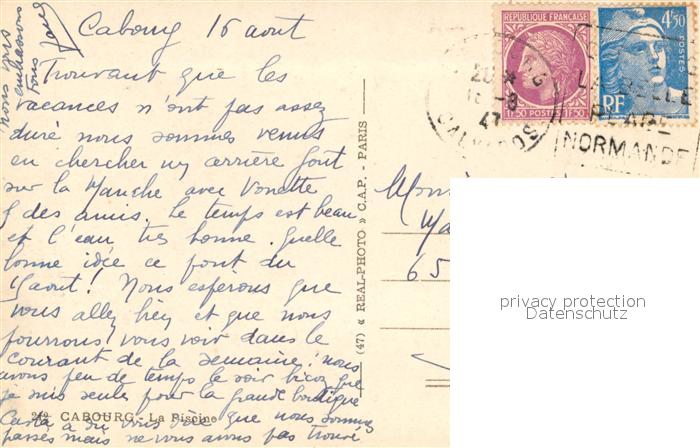 Cabourg 16 aout
Trouvant que les
vacances n'ont pas assez
duré nous sommes venus
en chercher un arrière gout
sur la Manche avec
des amis. Le temps est beau
et l'eau très bonne. Quelle
bonne idée ce pont du
15 aout! Nous espérons que
vous allez bien et que nous
pourrons vous voir dans le
courant de la semaine; nous
avons peu de temps le soir
je suis seule pour la grande boutique
a dû vous dire que nous sommes
passés mais ne vous avons pas trouvé
nous vous
embrassons
tous
242 CABOURG - La Piscine
(47) « REAL-PHOTO » C.A.P. - PARIS
RÉPUBLIQUE FRANÇAISE
1F50 POSTES 1F50
4F50
POSTES
RF
CALVADOS
47
LA BELLE
PLAGE
NORMANDE
65
privacy protection
Datenschutz